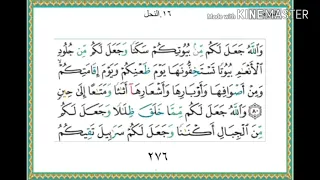 ١٦. النحل
Made with KINEMASTER
وَاللَّهُ جَعَلَ لَكُم مِّنۢ بُيُوتِكُمْ سَكَنًا وَجَعَلَ لَكُم مِّن جُلُودِ
ٱلْأَنْعَٰمِ بُيُوتًا تَسْتَخِفُّونَهَا يَوْمَ ظَعْنِكُمْ وَيَوْمَ إِقَامَتِكُمْ
وَمِنْ أَصْوَافِهَا وَأَوْبَارِهَا وَأَشْعَارِهَآ أَثَٰثًا وَمَتَٰعًا إِلَىٰ حِينٍ
٨٠ وَٱللَّهُ جَعَلَ لَكُم مِّمَّا خَلَقَ ظِلَٰلًا وَجَعَلَ لَكُم
مِّنَ ٱلْجِبَالِ أَكْنَٰنًا وَجَعَلَ لَكُمْ سَرَٰبِيلَ تَقِيكُمُ
٢٧٦